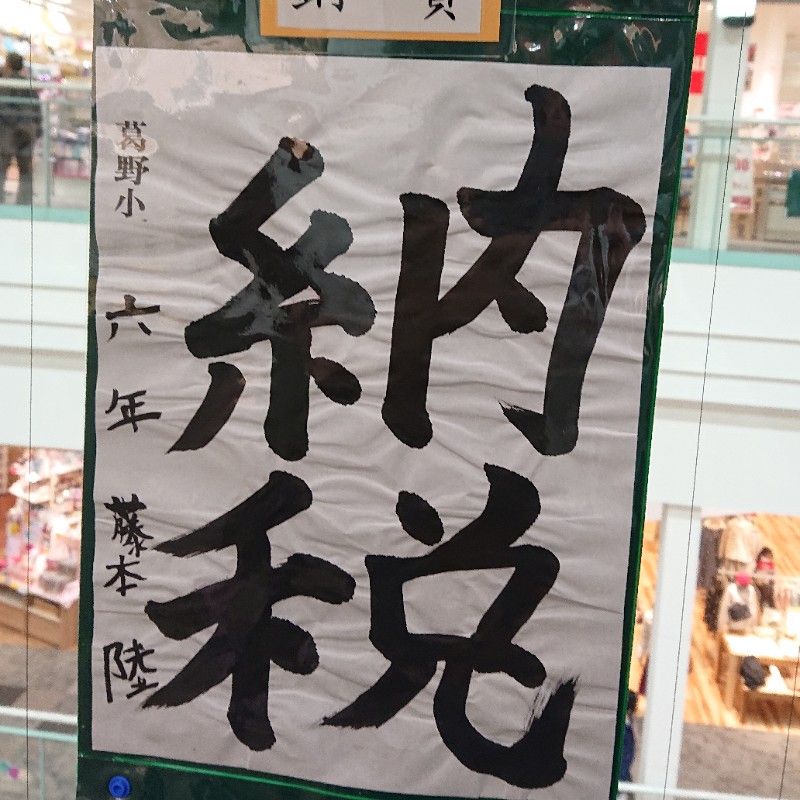 銅賞
納税
葛野小 六年 藤本 陸